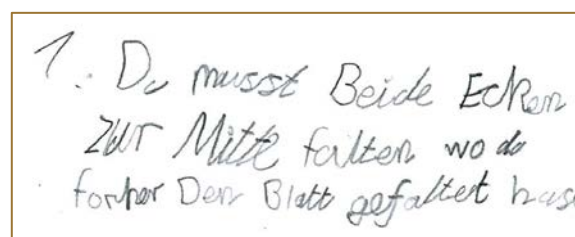 1. Du musst Beide Ecken
zur Mitte falten wo du
forher Den Blatt gefaltet has